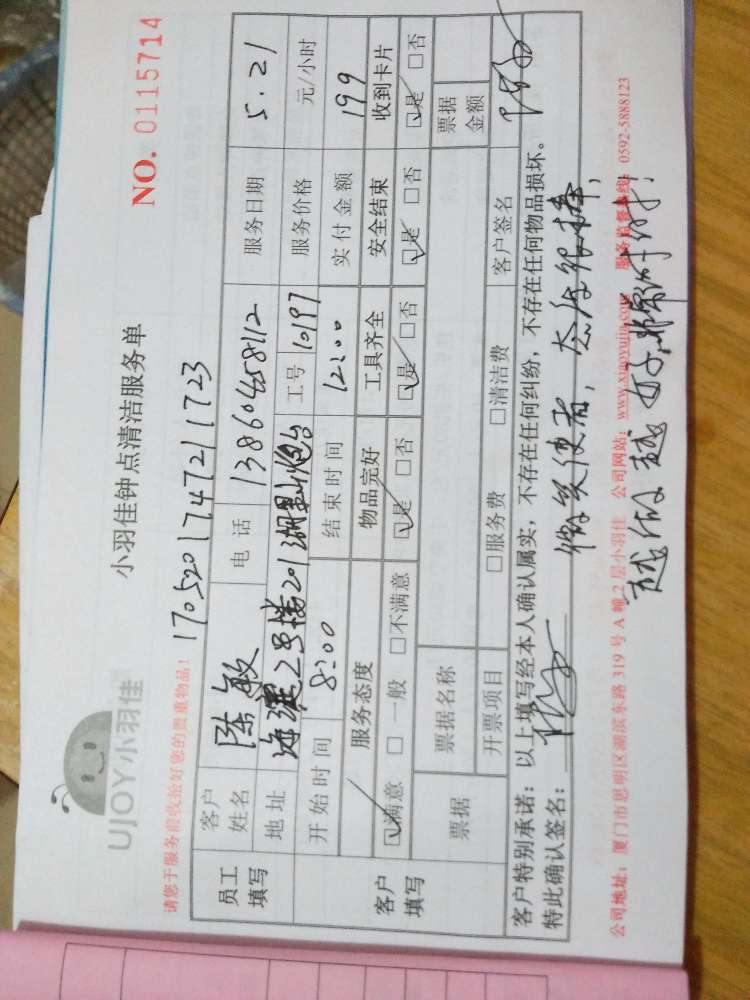 UJOY小羽佳
小羽佳钟点清洁服务单
NO. 0115714
请您于服务前收拾好您的贵重物品！
1705201747211723
员工填写
客户姓名 陈敏 电话 13860458112 服务日期 5.21
地址 2号楼2013 工号 10197 服务价格 元/小时
客户填写
开始时间 8:00 结束时间 12:00 实付金额 199
服务态度 物品完好 工具齐全 安全结束 收到卡片
☑满意 □一般 □不满意 ☑是 □否 ☑是 □否 ☑是 □否 ☑是 □否
票据 票据名称 票据金额
开票项目 □服务费 □清洁费 客户签名
客户特别承诺：以上填写经本人确认属实，不存在任何纠纷，不存在任何物品损坏。
特此确认签名：
微笑使者，态度很棒，
公司地址：厦门市思明区湖滨东路 319 号 A 幢 2 层小羽佳 公司网站：www.xiaoyujia.com 服务监督热线：0592-5888123
越做越好，非常好!